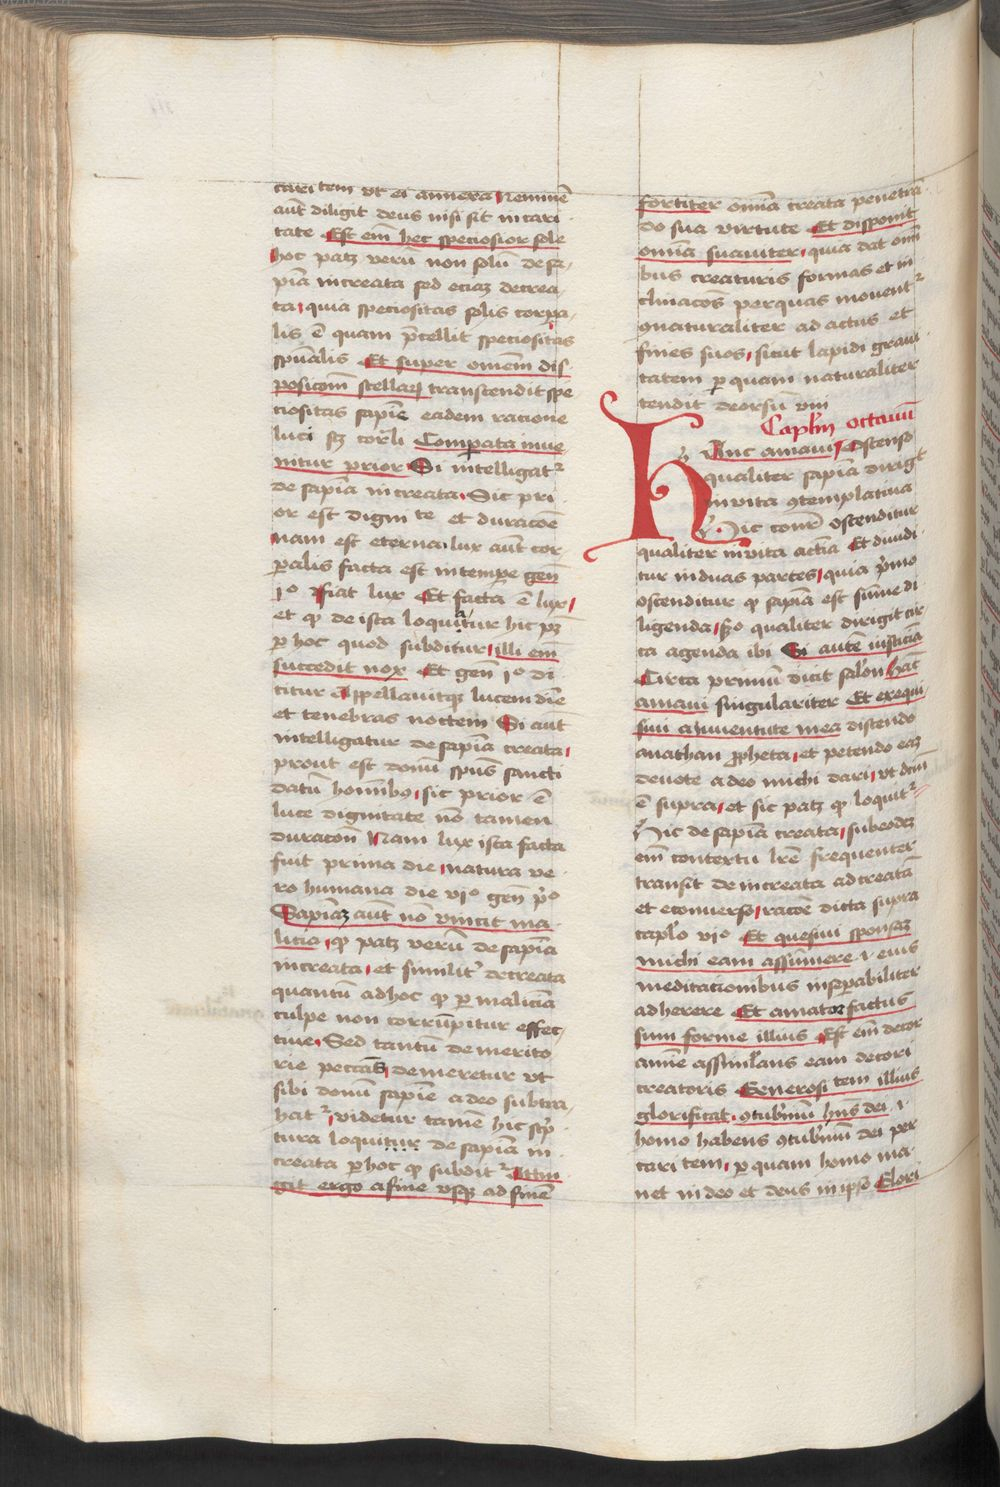 caritem vt ei annexa Neminē
aūt diligit deus nisi sit in cari
tate Est em̄ hec speciosior sole
hoc patȝ verū non solū de sa
pīa increata sed eciaȝ de crea
ta quia speciositas solis corpa
lis ē quam p̄cellit speciositas
spūalis Et super omēm dis
posicōm stellarꝝ transcendit spē
ciositas sapīe eadem racione
luci sȝ cor̄li Compata inue
nitur prior Si intelligatᷣ
de sapīa increata Sic pri
or est digni te et duracōe
nam est eterna lux aūt cor
ꝑalis facta est in tempe gen̄
1o fiat lux Et facta ē lux
et ꝙ de ista loquitur hic pȝ
ꝑ hoc quod subditur illi em̄
succedit nox Et gen̄ 1o di
citur Appellauitqȝ lucem diē
et tenebras noctem Si aūt
intelligatur de sapīa creata
prout est donū spūs sancti
datū hom̄ibꝫ sic prior ē
luce dignitate nō tamen
duracōn Nam lux ista facta
fuit prima die natura ve
ro humana die vio gen̄ p̄o
Sapīaȝ aūt nō vincit ma
licia ꝙ patȝ verū de sapīa
increata et similitᷣ de creata
quantū ad hoc ꝙ ꝑ maliciā
culpe non corrūpitur effec
tiue Sed tantū demerito
rie peccās demeretur vt
sibi donū sapīe a deo subtra
hatᷣ videtur tamē hic scrip
tura loquitur de sapīa in
creata ꝑ hoc ꝙ subditᷣ Attin
git ergo a fine vsqȝ ad finē
fortiter omīa creata penetrā
do sua virtute Et disponit
omīa suauiter quia dat om̄i
bus creaturis formas et in
clinacōs per quas mouentᷣ
ꝯnaturaliter ad actus et
fines suos sicut lapidi graui
tatem ꝑ quam naturaliter
tendit deorsū viii
Caplm̄ octauū
Hanc amaui Ostenso
qualiter sapīa dirigit
in vita ꝯtemplatiua
Hic conr̄ ostenditur
qualiter in vita actīa Et diuidi
tur in duas partes quia p̄mo
ostenditur ꝙ sapīa est sūme di
ligenda sc̄o qualiter dirigit cir
ca agenda ibi Si autē iusticiā
Circa primū dicit salōn hāc
amaui singulariter Et exequi
siui a iuuentute mea discendo
a nathan ꝓpheta et petendo eaȝ
deuote a deo michi dari vt dc̄m
ē supra et sic patȝ ꝙ loquitᷣ
Hic de sapīa creata sub eodeȝ
em̄ contextu lrē frequenter
transit de increata ad creatā
et econuerso racōe dicta supra
caplo vio Et quesiui sponsaȝ
michi eam assūmere i eius
meditacionibus insꝑabiliter
adherere Et amator factus
sum forme illius Est em̄ decor
anīe assimilans eam decori
creatoris Generosi tem illius
glorificat ꝯtub̄niū hn̄s dei i
homo habens ꝯtub̄niū dei per
caritem ꝑ quam homo ma
net in deo et deus in ipso Glori